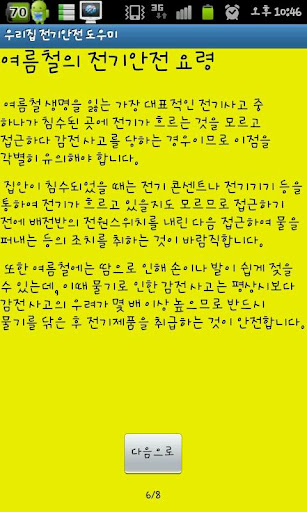 70
3G
오후 10:46
우리집 전기안전 도우미
여름철의 전기안전 요령
여름철 생명을 잃는 가장 대표적인 전기사고 중
하나가 침수된 곳에 전기가 흐르는 것을 모르고
접근하다 감전 사고를 당하는 경우이므로 이점을
각별히 유의해야 합니다.
집안이 침수되었을 때는 전기 콘센트나 전기기기 등을
통하여 전기가 흐르고 있을지도 모르므로 접근하기
전에 배전반의 전원스위치를 내린 다음 접근하여 물을
퍼내는 등의 조치를 취하는 것이 바람직합니다.
또한 여름철에는 땀으로 인해 손이나 발이 쉽게 젖을
수 있는데, 이때 물기로 인한 감전사고는 평상시보다
감전 사고의 우려가 몇 배 이상 높으므로 반드시
물기를 닦은 후 전기제품을 취급하는 것이 안전합니다.
다음으로
6/8